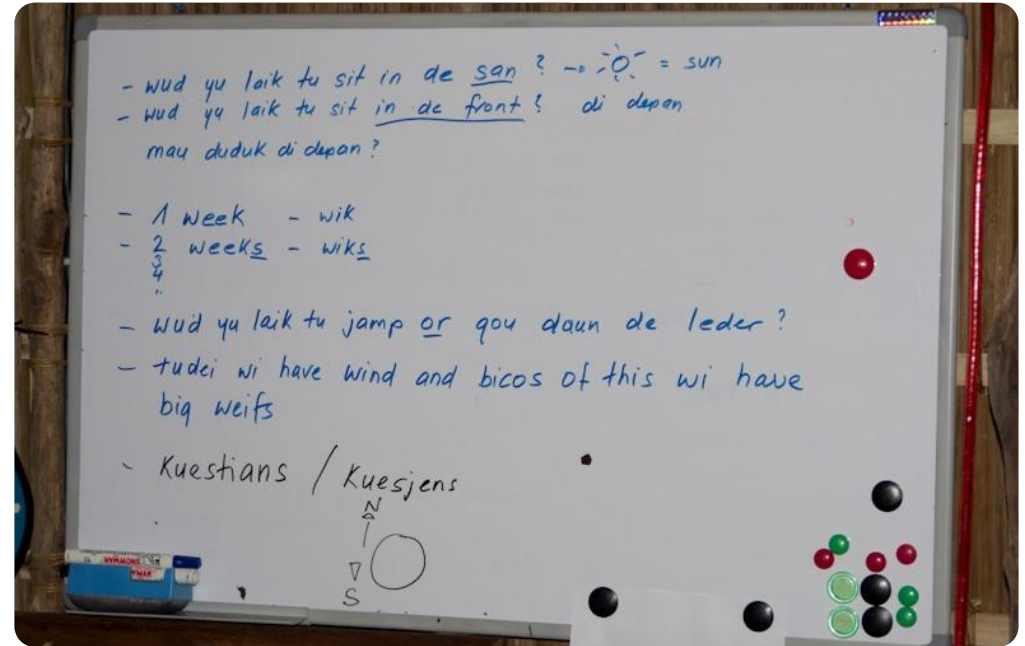 - wud yu laik tu sit in de san ? → = sun
- wud yu laik tu sit in de front ? di depan
mau duduk di depan ?
- 1 week - wik
- 2 weeks - wiks
3
4
..
- wud yu laik tu jamp or gou daun de leder ?
- tudei wi have wind and bicos of this wi have
big weifs
- Kuestians / Kuesjens
N
S
SNOWMAN